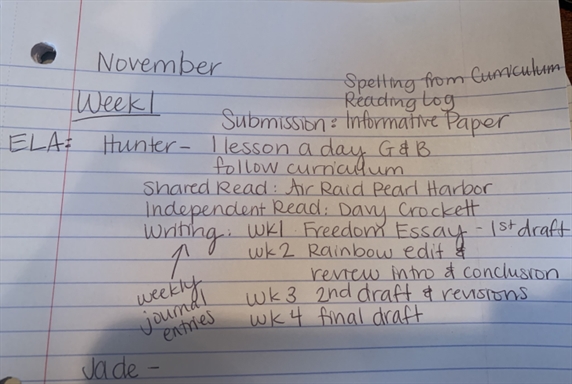 November
Spelling from Curriculum
Week 1
Reading Log
Submission: Informative Paper
ELA: Hunter - 1 lesson a day G&B
follow curriculum
Shared Read: Air Raid Pearl Harbor
Independent Read: Davy Crockett
Writing: wk1 Freedom Essay - 1st draft
wk2 Rainbow edit &
review intro & conclusion
weekly journal entries
wk3 2nd draft & revisions
wk4 final draft
Jade -